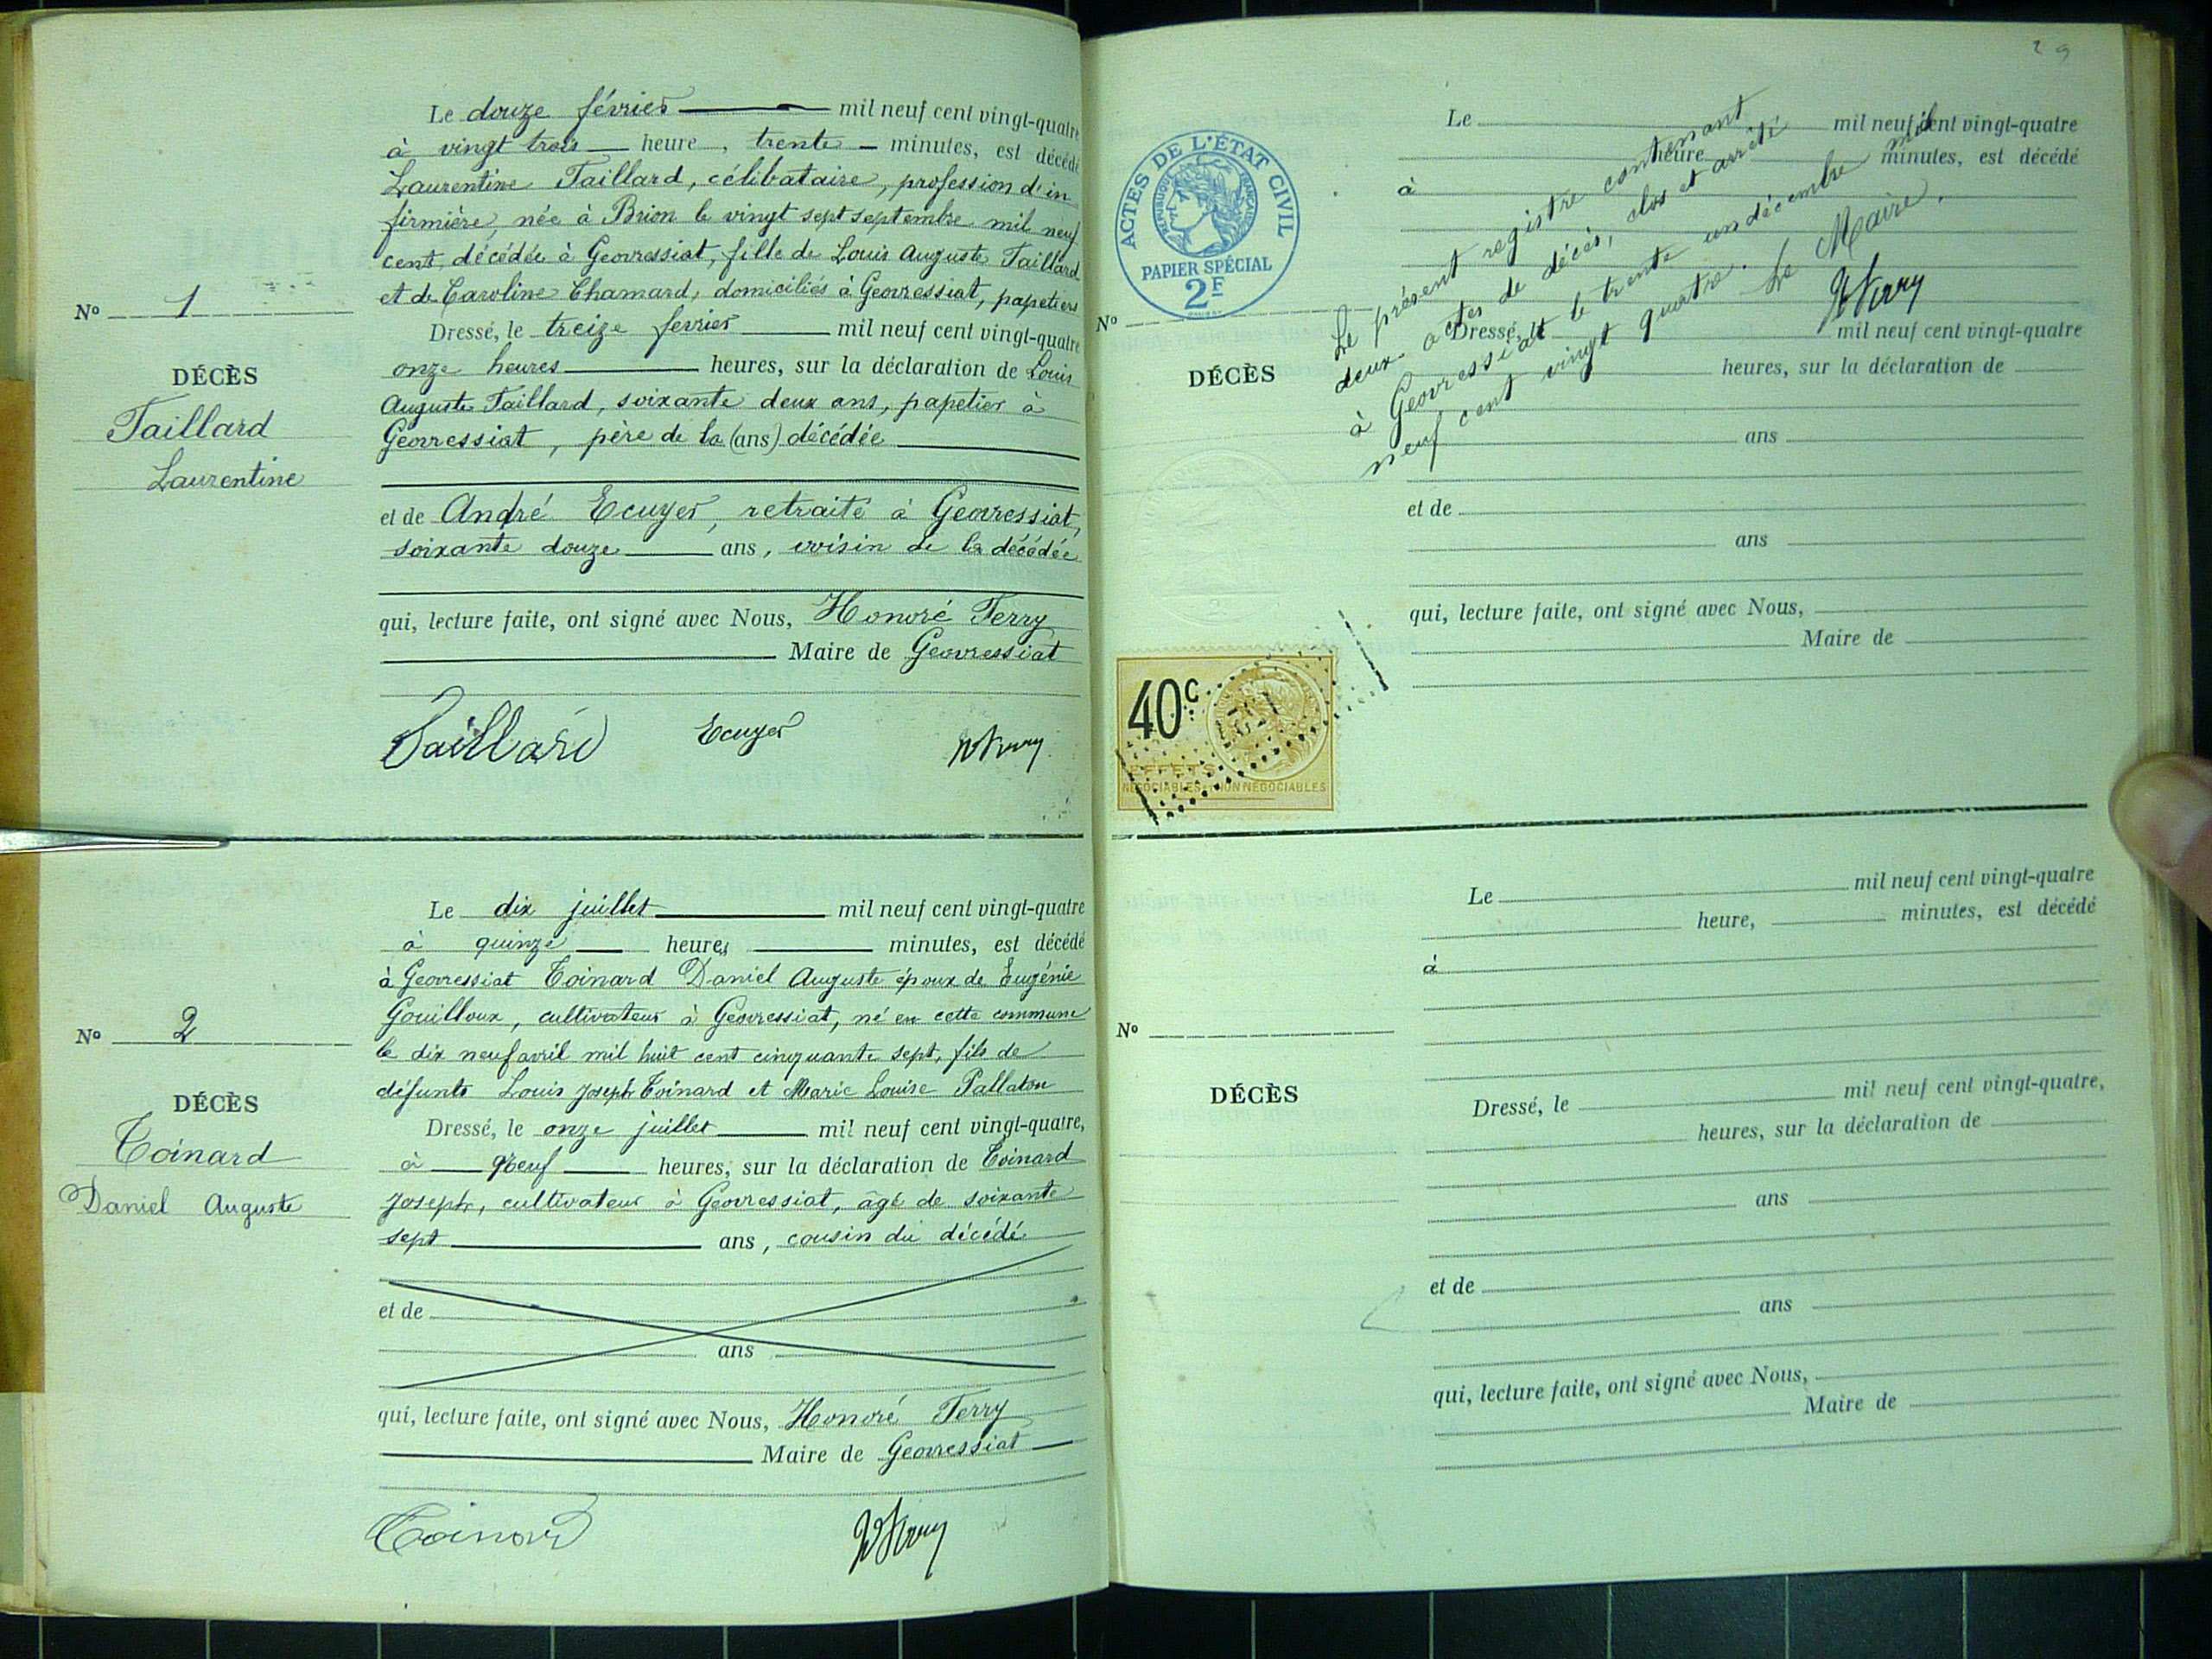 Le douze février mil neuf cent vingt-quatre
à vingt trois heure, trente minutes, est décédé
Laurentine Taillard, célibataire, profession d'in
firmière, née à Brion le vingt sept septembre mil neuf
cent, décédée à Geovressiat, fille de Louis Auguste Taillard
et de Caroline Chamard, domiciliés à Geovressiat, papetiers
Dressé, le treize fevrier mil neuf cent vingt-quatre
onze heures heures, sur la déclaration de Louis
Auguste Taillard, soixante deux ans, papetier à
Geovressiat, père de la (ans) décédée
et de André Ecuyer, retraité à Geovressiat,
soixante douze ans, voisin de la décédée
qui, lecture faite, ont signé avec Nous, Honoré Ferry
Maire de Geovressiat
Taillard Ecuyer HFerry
No 1
DÉCÈS
Taillard
Laurentine
Le dix juillet mil neuf cent vingt-quatre
à quinze heures minutes, est décédé
à Geovressiat Toinard Daniel Auguste époux de Eugénie
Gouilloux, cultivateur à Geovressiat, né en cette commune
le dix neuf avril mil huit cent cinquante sept, fils de
défunts Louis Joseph Toinard et Marie Louise Pallaton
Dressé, le onze juillet mil neuf cent vingt-quatre,
à neuf heures, sur la déclaration de Toinard
Joseph, cultivateur à Geovressiat, âgé de soixante
sept ans, cousin du décédé
et de
ans
qui, lecture faite, ont signé avec Nous, Honoré Ferry
Maire de Geovressiat
Toinard HFerry
No 2
DÉCÈS
Toinard
Daniel Auguste
29
ACTES DE L'ÉTAT CIVIL
RÉPUBLIQUE FRANÇAISE
PAPIER SPÉCIAL
2F
Le mil neuf cent vingt-quatre
heure minutes, est décédé
à
Le présent registre contenant
deux actes de décès, clos et arrêté
à Geovressiat le trente un décembre mil
neuf cent vingt quatre. Le Maire,
HFerry
No
DÉCÈS
Dressé, le mil neuf cent vingt-quatre
heures, sur la déclaration de
ans
et de
ans
qui, lecture faite, ont signé avec Nous,
Maire de
40c
EFFETS
NÉGOCIABLES NON NÉGOCIABLES
Le mil neuf cent vingt-quatre
heure, minutes, est décédé
à
No
DÉCÈS
Dressé, le mil neuf cent vingt-quatre,
heures, sur la déclaration de
ans
et de
ans
qui, lecture faite, ont signé avec Nous,
Maire de